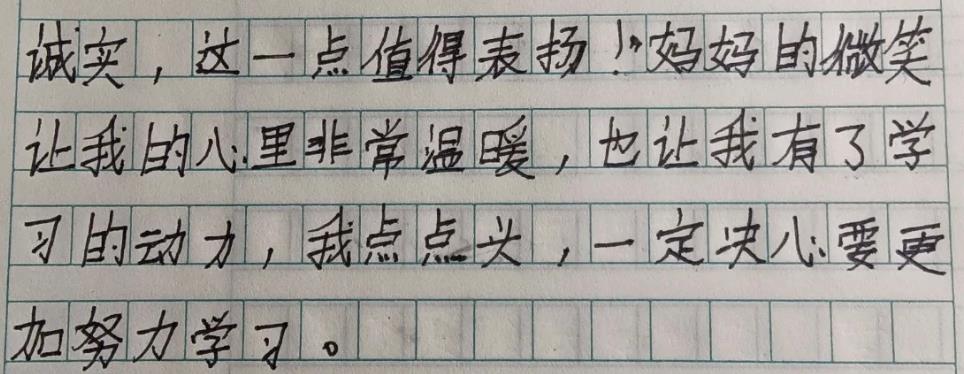 诚实，这一点值得表扬！”妈妈的微笑
让我的心里非常温暖，也让我有了学
习的动力，我点点头，一定决心要更
加努力学习。